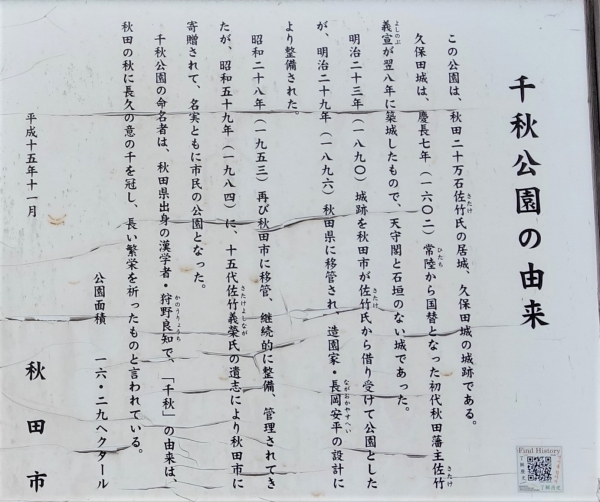 千秋公園の由来
この公園は、秋田二十万石佐竹氏の居城、久保田城の城跡である。
久保田城は、慶長七年（一六〇二）常陸から国替となった初代秋田藩主佐竹
義宣が翌八年に築城したもので、天守閣と石垣のない城であった。
明治二十三年（一八九〇）城跡を秋田市が佐竹氏から借り受けて公園とした
が、明治二十九年（一八九六）秋田県に移管され、造園家・長岡安平の設計に
より整備された。
昭和二十八年（一九五三）再び秋田市に移管、継続的に整備、管理されてき
たが、昭和五十九年（一九八四）に、十五代佐竹義榮氏の遺志により秋田市に
寄贈されて、名実ともに市民の公園となった。
千秋公園の命名者は、秋田県出身の漢学者・狩野良知で、「千秋」の由来は、
秋田の秋に長久の意の千を冠し、長い繁栄を祈ったものと言われている。
公園面積　一六・二九ヘクタール
平成十五年十一月
秋田市
Find History